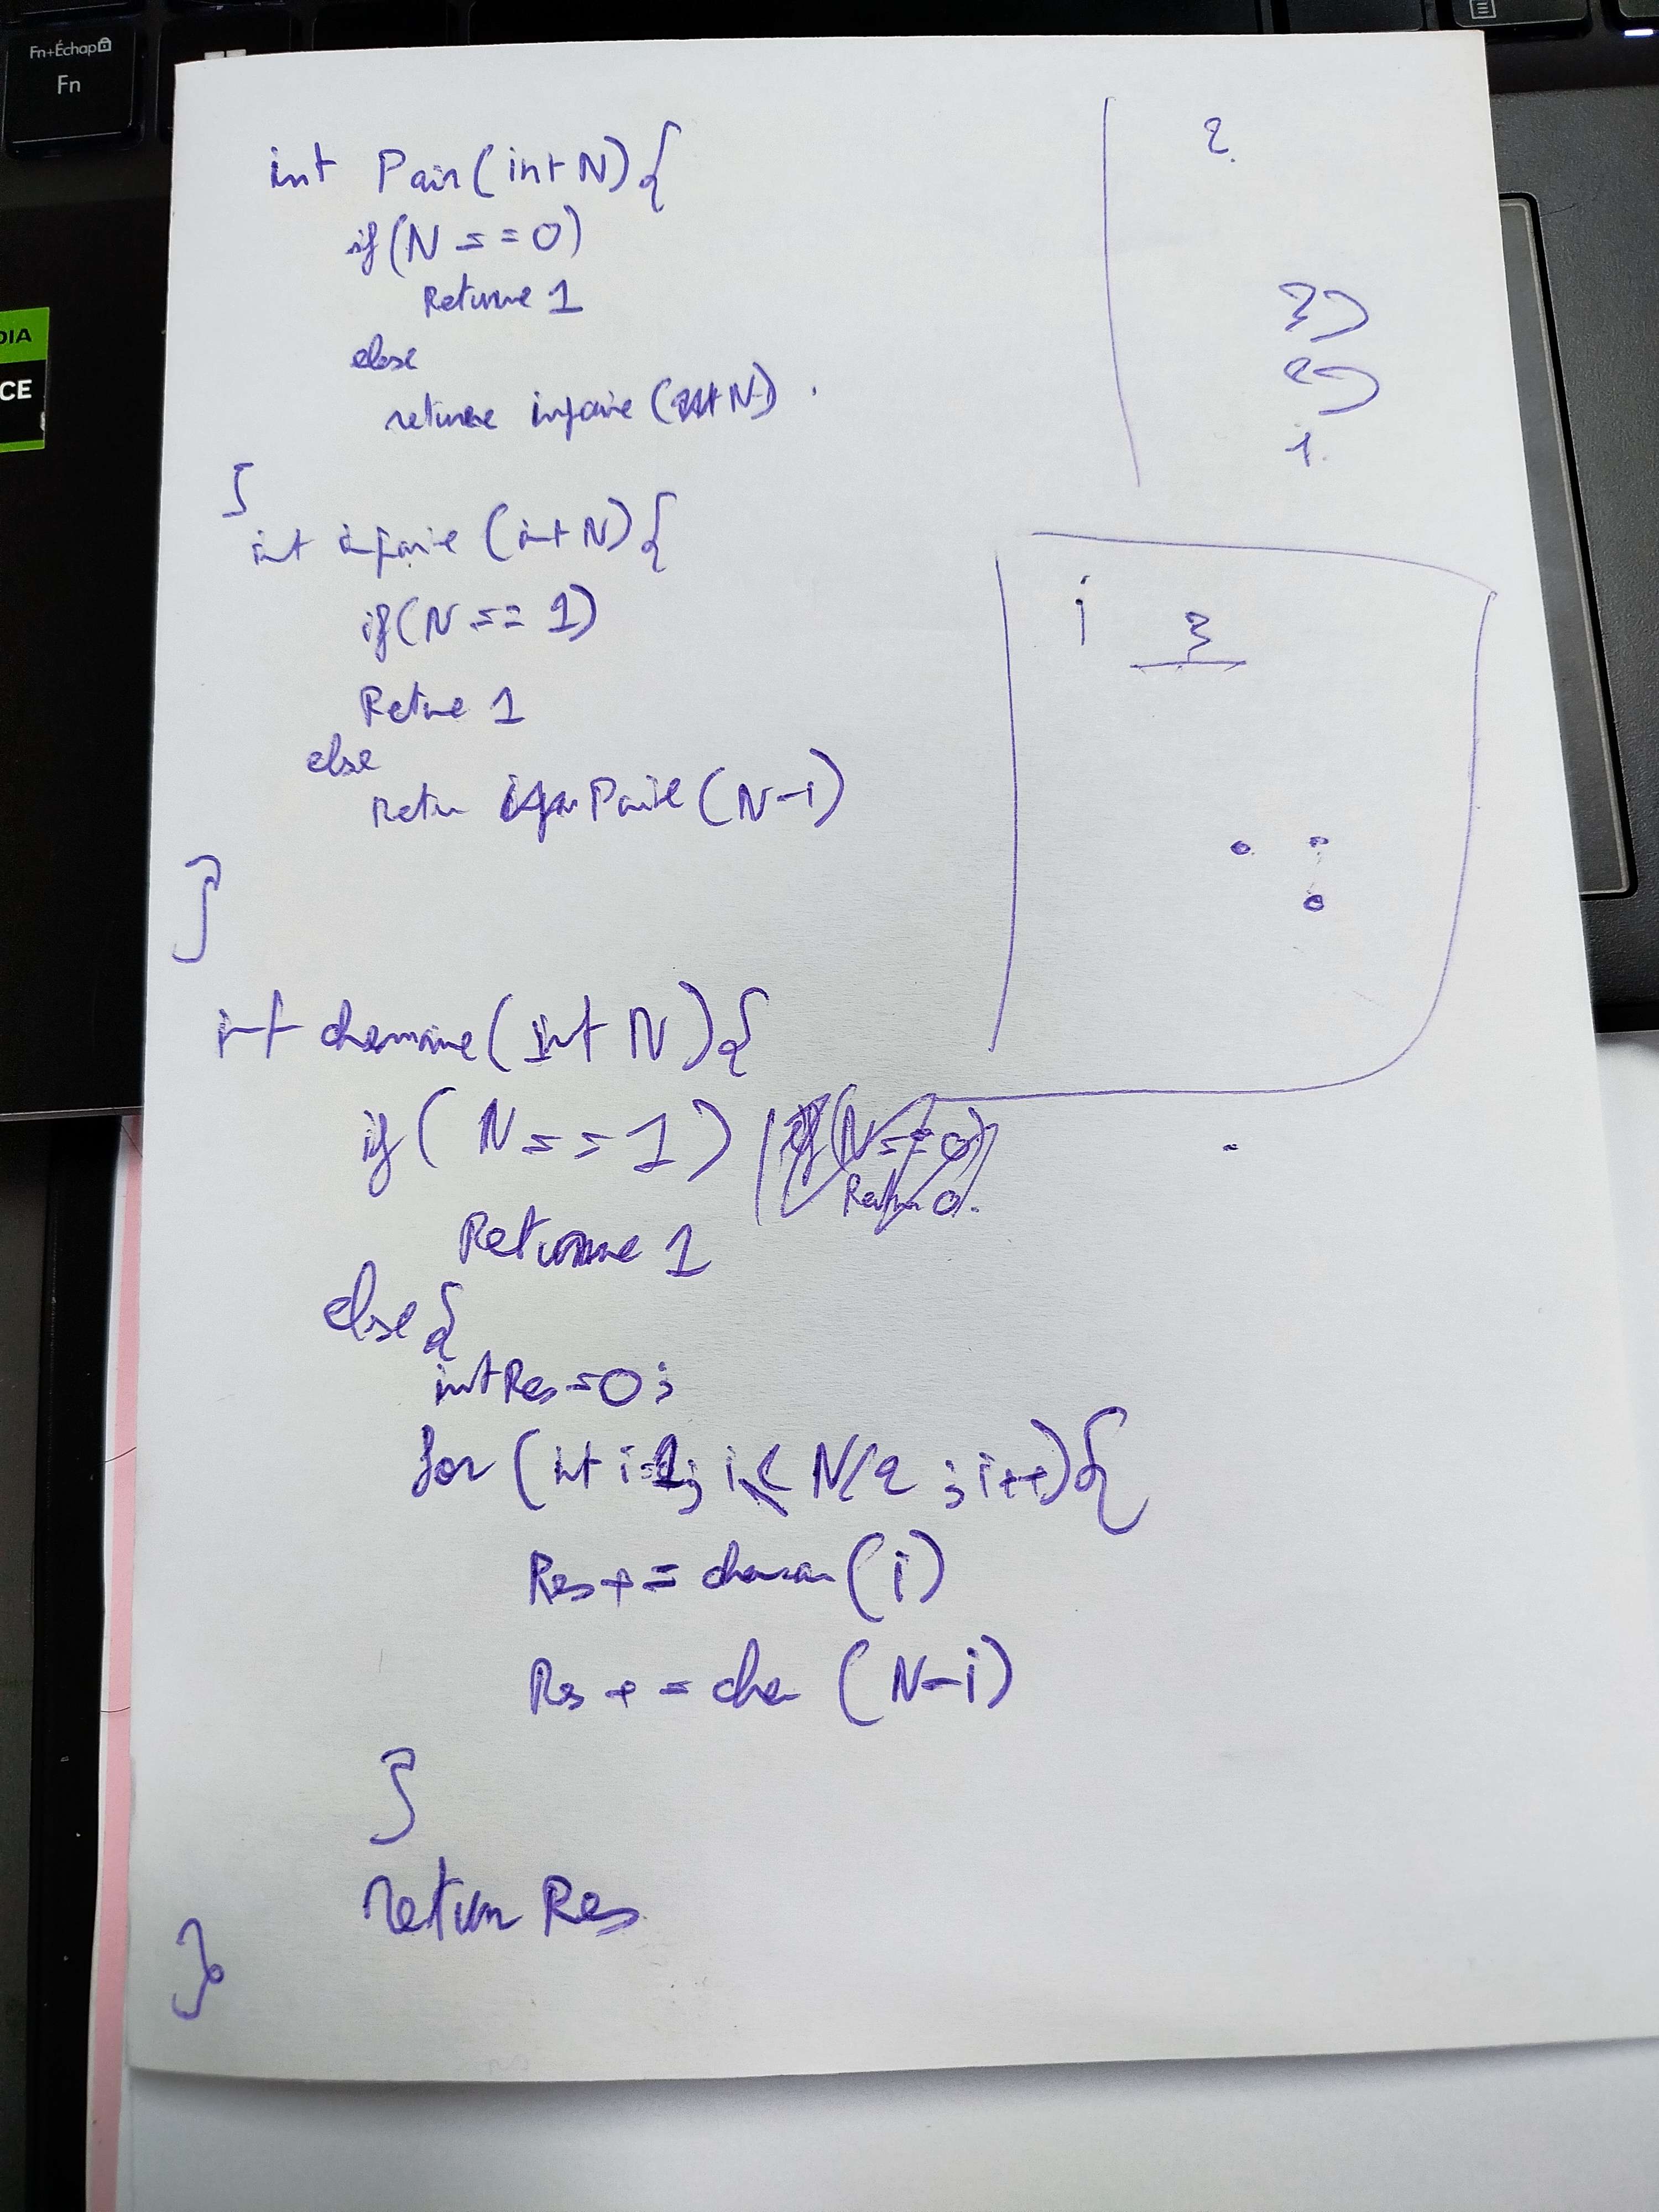 Fn+Échap
Fn
DIA
CE
int Pair(int N){
if(N==0)
Returne 1
else
returne impaire (N-1) .
}
int impaire (int N){
if(N==1)
Retune 1
else
Retun Paire (N-i)
}
int chemaine(int N){
if(N==1)
if(N==0)
Return 0.
Returnne 1
else{
int Res=0;
for (int i=1; i≤N/2 ;i++){
Res+=cheman(i)
Res+=che (N-i)
}
return Res
}
2.
3
2
1.
i 3